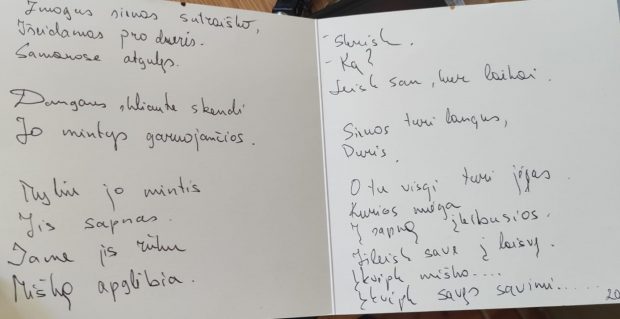 Žmogus sienas sutraiško,
Išeidamas pro duris.
Samanose atgulęs.
Dangaus skliaute skendi
Jo mintys garuojančios.
Myliu jo mintis
Jis sapnas.
Jame jis rūku
Mišką apglėbia.
- Skrisk.
- Ką?
Leisk sau, kur laikai.
Sienos turi langus,
Duris.
O tu visgi turi jėgas
Kurios miega
Į sapną įkibusios.
Išleisk save į laisvę.
Įkvėpk miško....
Įkvėpk savęs savimi.....
20